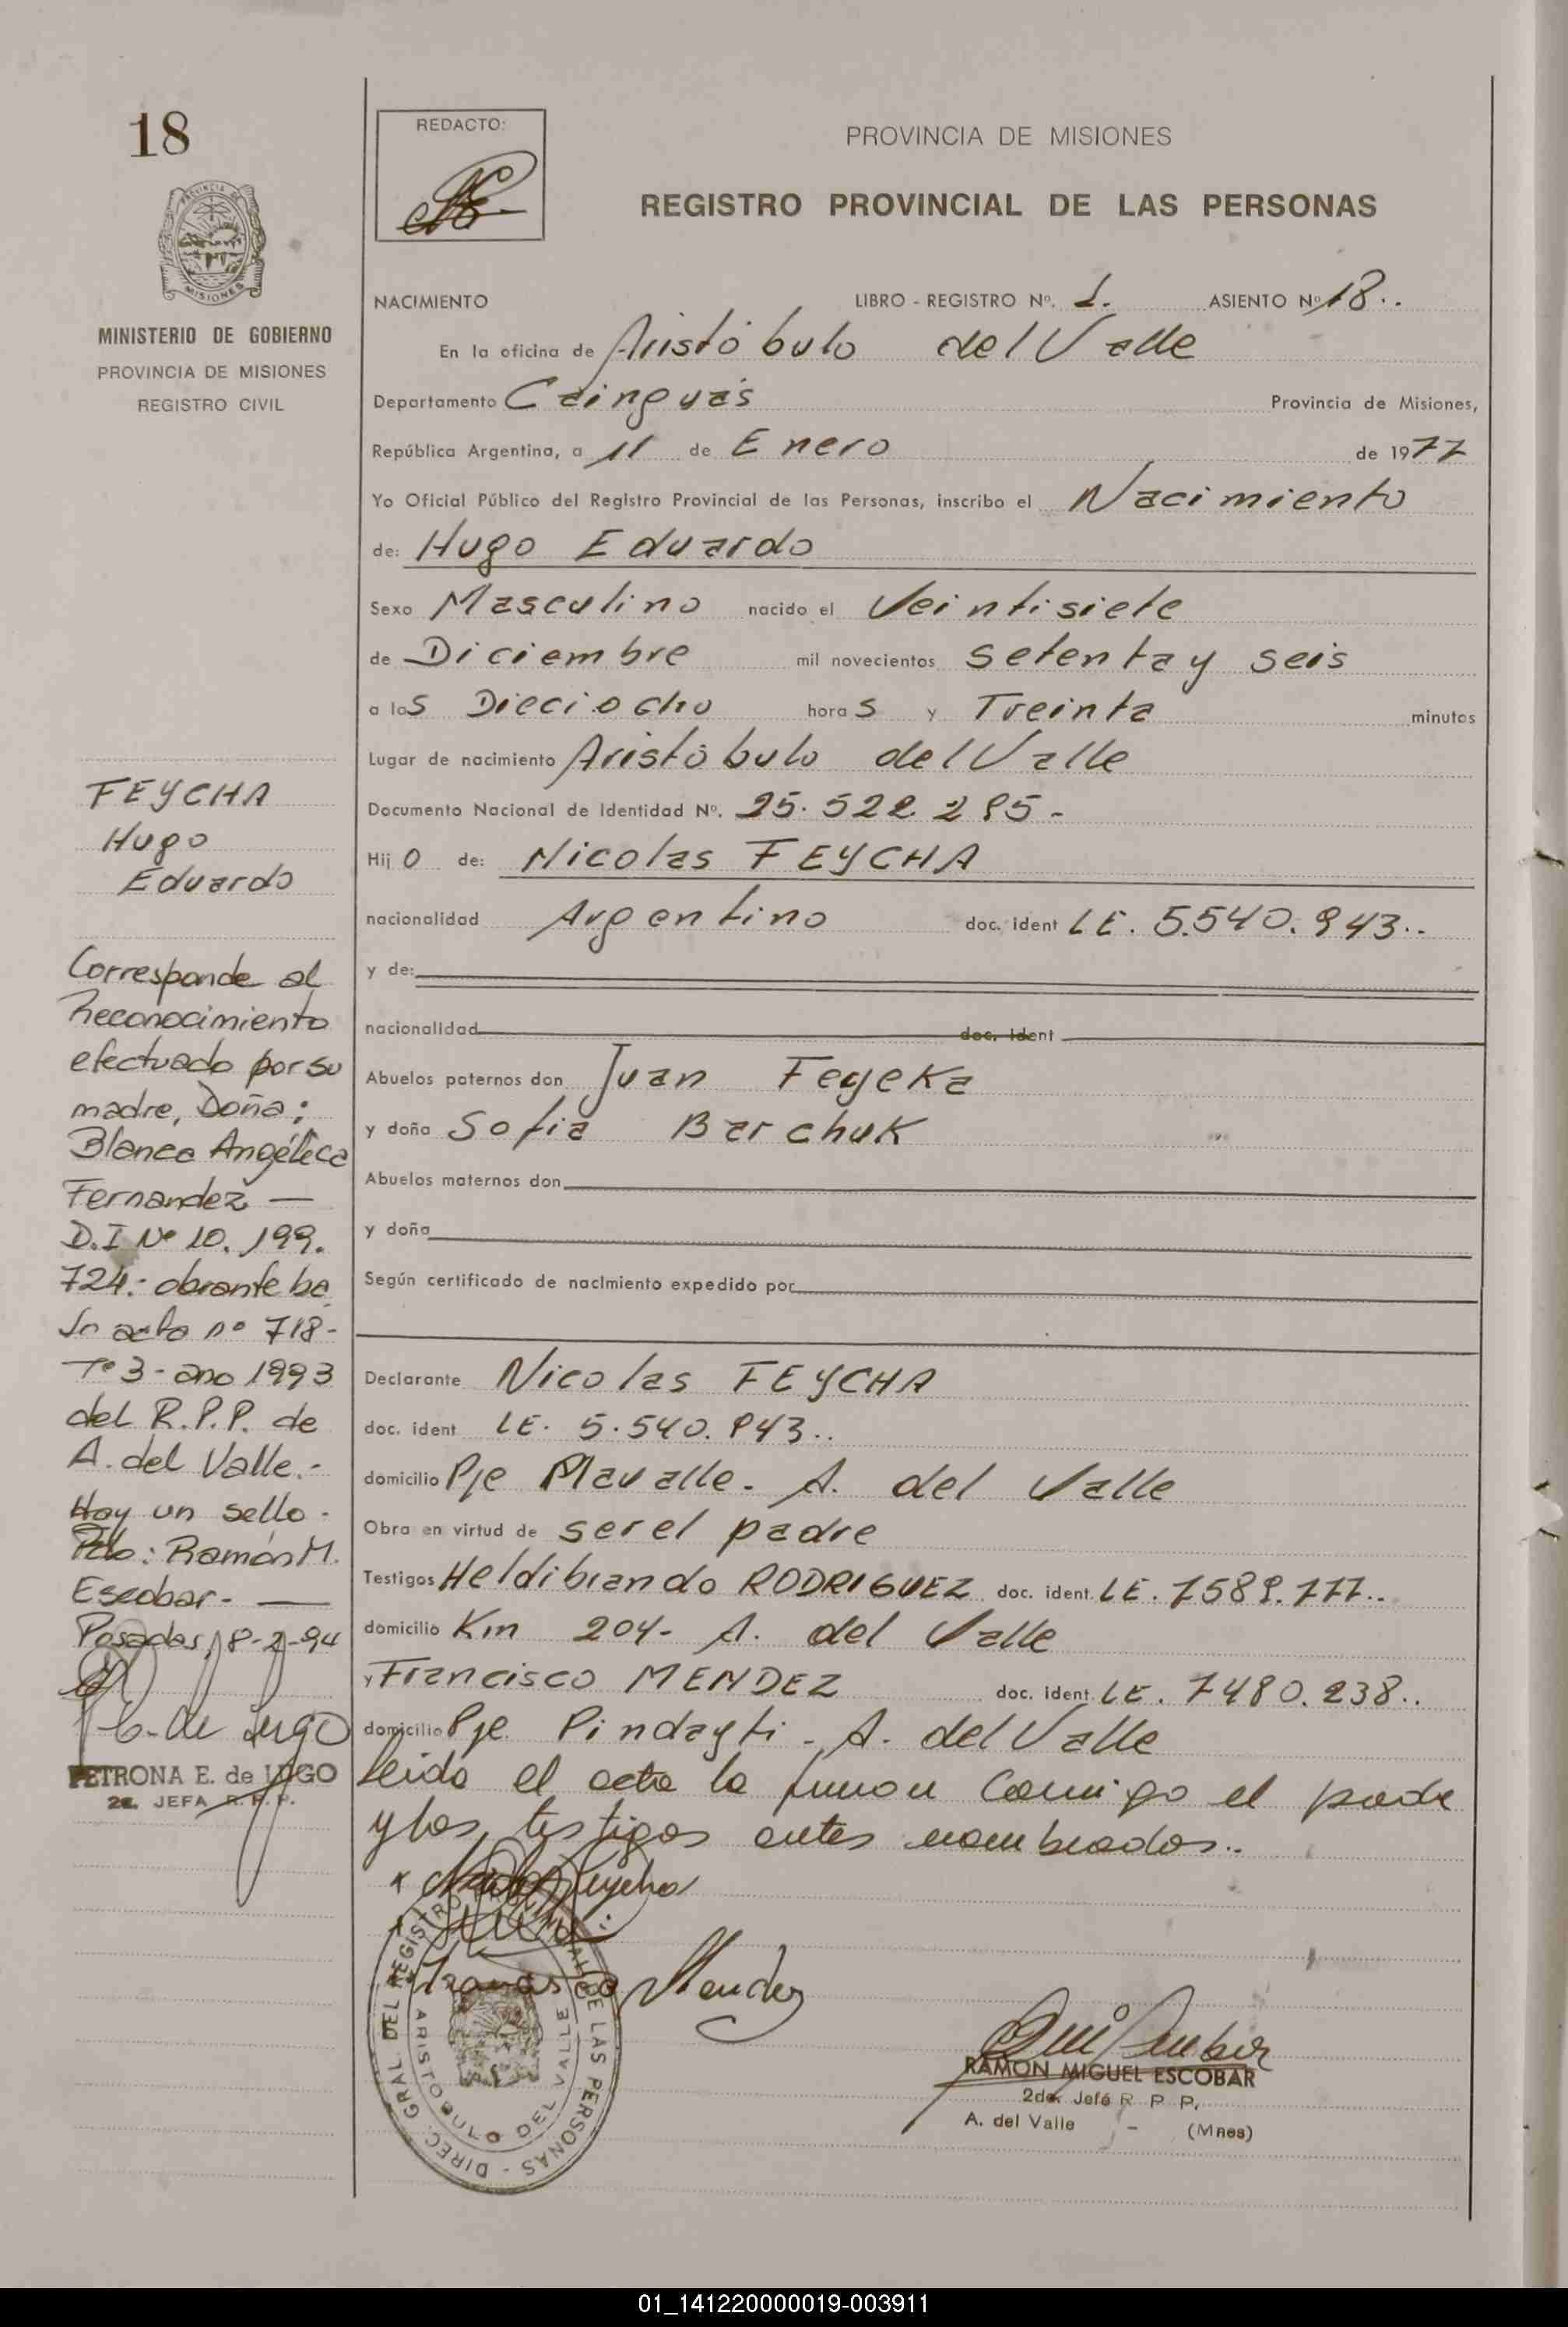 18
MINISTERIO DE GOBIERNO
PROVINCIA DE MISIONES
REGISTRO CIVIL
FEYCHA
Hugo
Eduardo
Corresponde al
Reconocimiento
efectuado por su
madre, Doña:
Blanca Angélica
Fernandez —
D.I Nº 10. 199.
724.- obrante ba
Jo acta nº 718-
Tº 3 - año 1993
del R.P.P. de
A. del Valle.-
Hay un sello -
Fdo: Ramón M.
Escobar. —
Posadas, 8-2-94
PETRONA E. de LUGO
2a. JEFA R.P.P.
REDACTO:
PROVINCIA DE MISIONES
REGISTRO PROVINCIAL DE LAS PERSONAS
NACIMIENTO LIBRO - REGISTRO Nº. 1. ASIENTO Nº 18..
En la oficina de Aristóbulo del Valle
Departamento Cainguás Provincia de Misiones,
República Argentina, a 11 de Enero de 1977
Yo Oficial Público del Registro Provincial de las Personas, inscribo el Nacimiento
de: Hugo Eduardo
Sexo Masculino nacido el Veintisiete
de Diciembre mil novecientos setenta y seis
a las Dieciocho horas y Treinta minutos
Lugar de nacimiento Aristóbulo del Valle
Documento Nacional de Identidad Nº. 25.522.295-
Hijo de: Nicolas FEYCHA
nacionalidad Argentino doc. ident LE. 5.540.943..
y de:
nacionalidad doc. ident
Abuelos paternos don Juan Feyeka
y doña Sofia Barchuk
Abuelos maternos don
y doña
Según certificado de nacimiento expedido por
Declarante Nicolas FEYCHA
doc. ident LE. 5.540.943..
domicilio Pje Mavalle. A. del Valle
Obra en virtud de ser el padre
Testigos Heldibrando RODRIGUEZ doc. ident. LE. 7589.777..
domicilio Km 204- A. del Valle
y Francisco MENDEZ doc. ident. LE. 7480.238..
domicilio Pje. Pindayti - A. del Valle
leida el acta la firman Conmigo el padre
y los testigos antes nombrados..
Francisco Mendez
DIREC. GRAL. DEL REGISTRO PROVINCIAL DE LAS PERSONAS
ARISTOBULO DEL VALLE
RAMON MIGUEL ESCOBAR
2do. Jefe R. P. P.
A. del Valle - (Mnes)
01_141220000019-003911